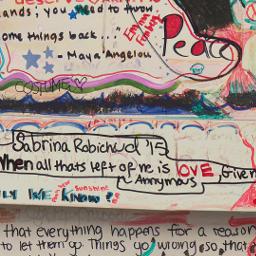 ands, you need to throw
ome things back..."
- Maya Angelou
Peace
COSTUMES
Sabrina Robichaud '13
When all thats left of me is LOVE, Give
~ Annymous
WE KNOW?
Sunshine
that everything happens for a reason
to let them go. Things go wrong so that